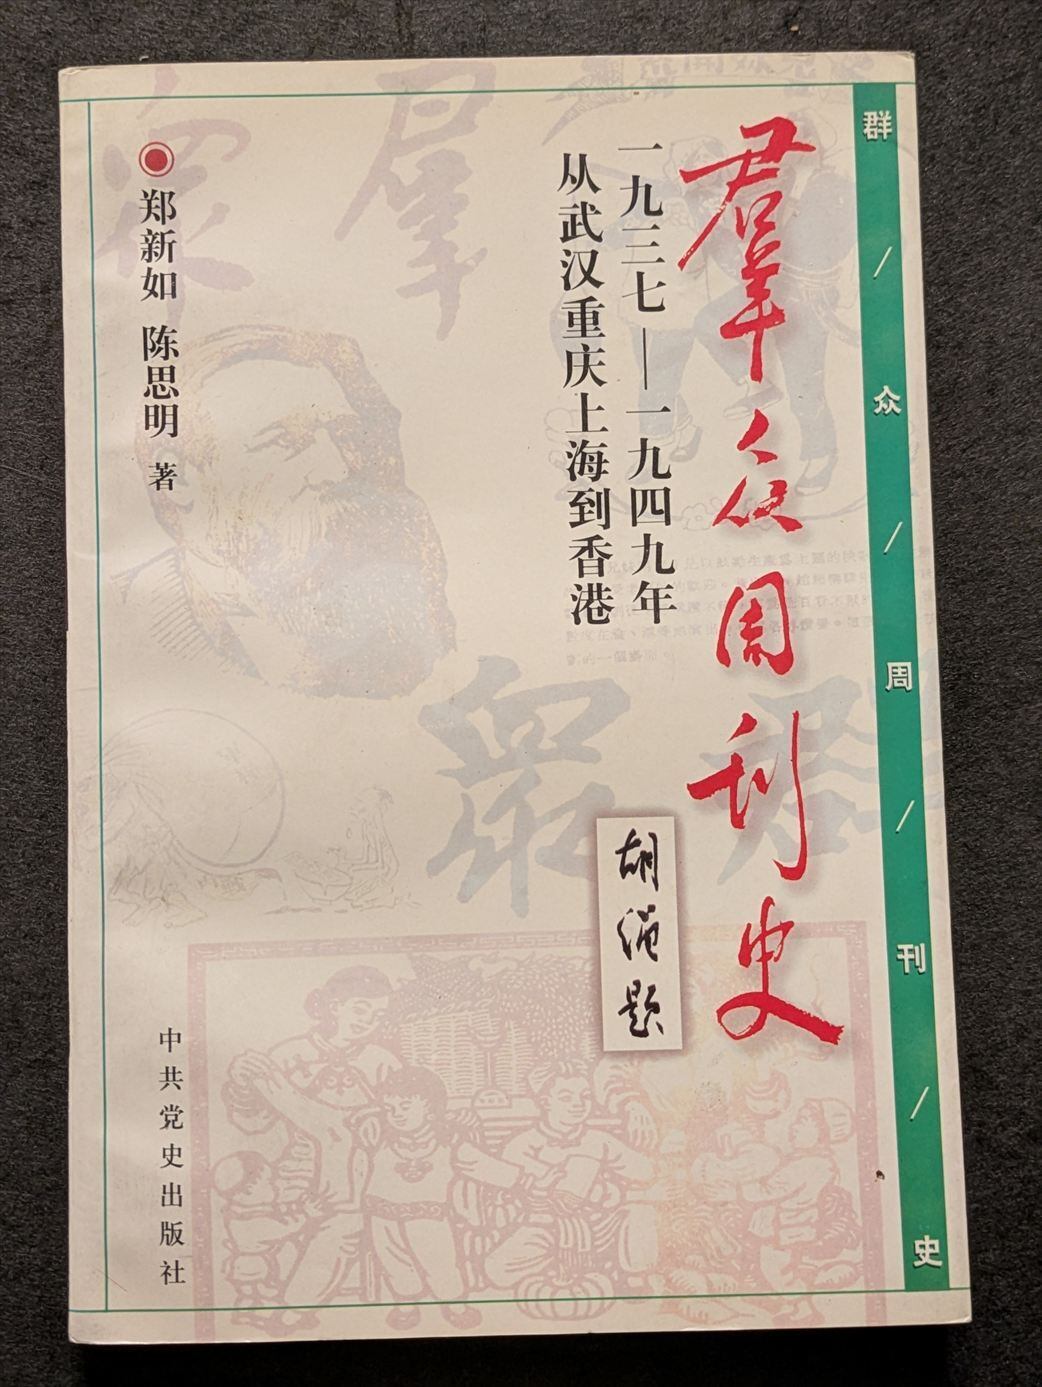 群/众/周/刊/史
羣众周刊史
一九三七—一九四九年
从武汉重庆上海到香港
胡绳题
郑新如 陈思明 著
中共党史出版社
羣
衆
衆